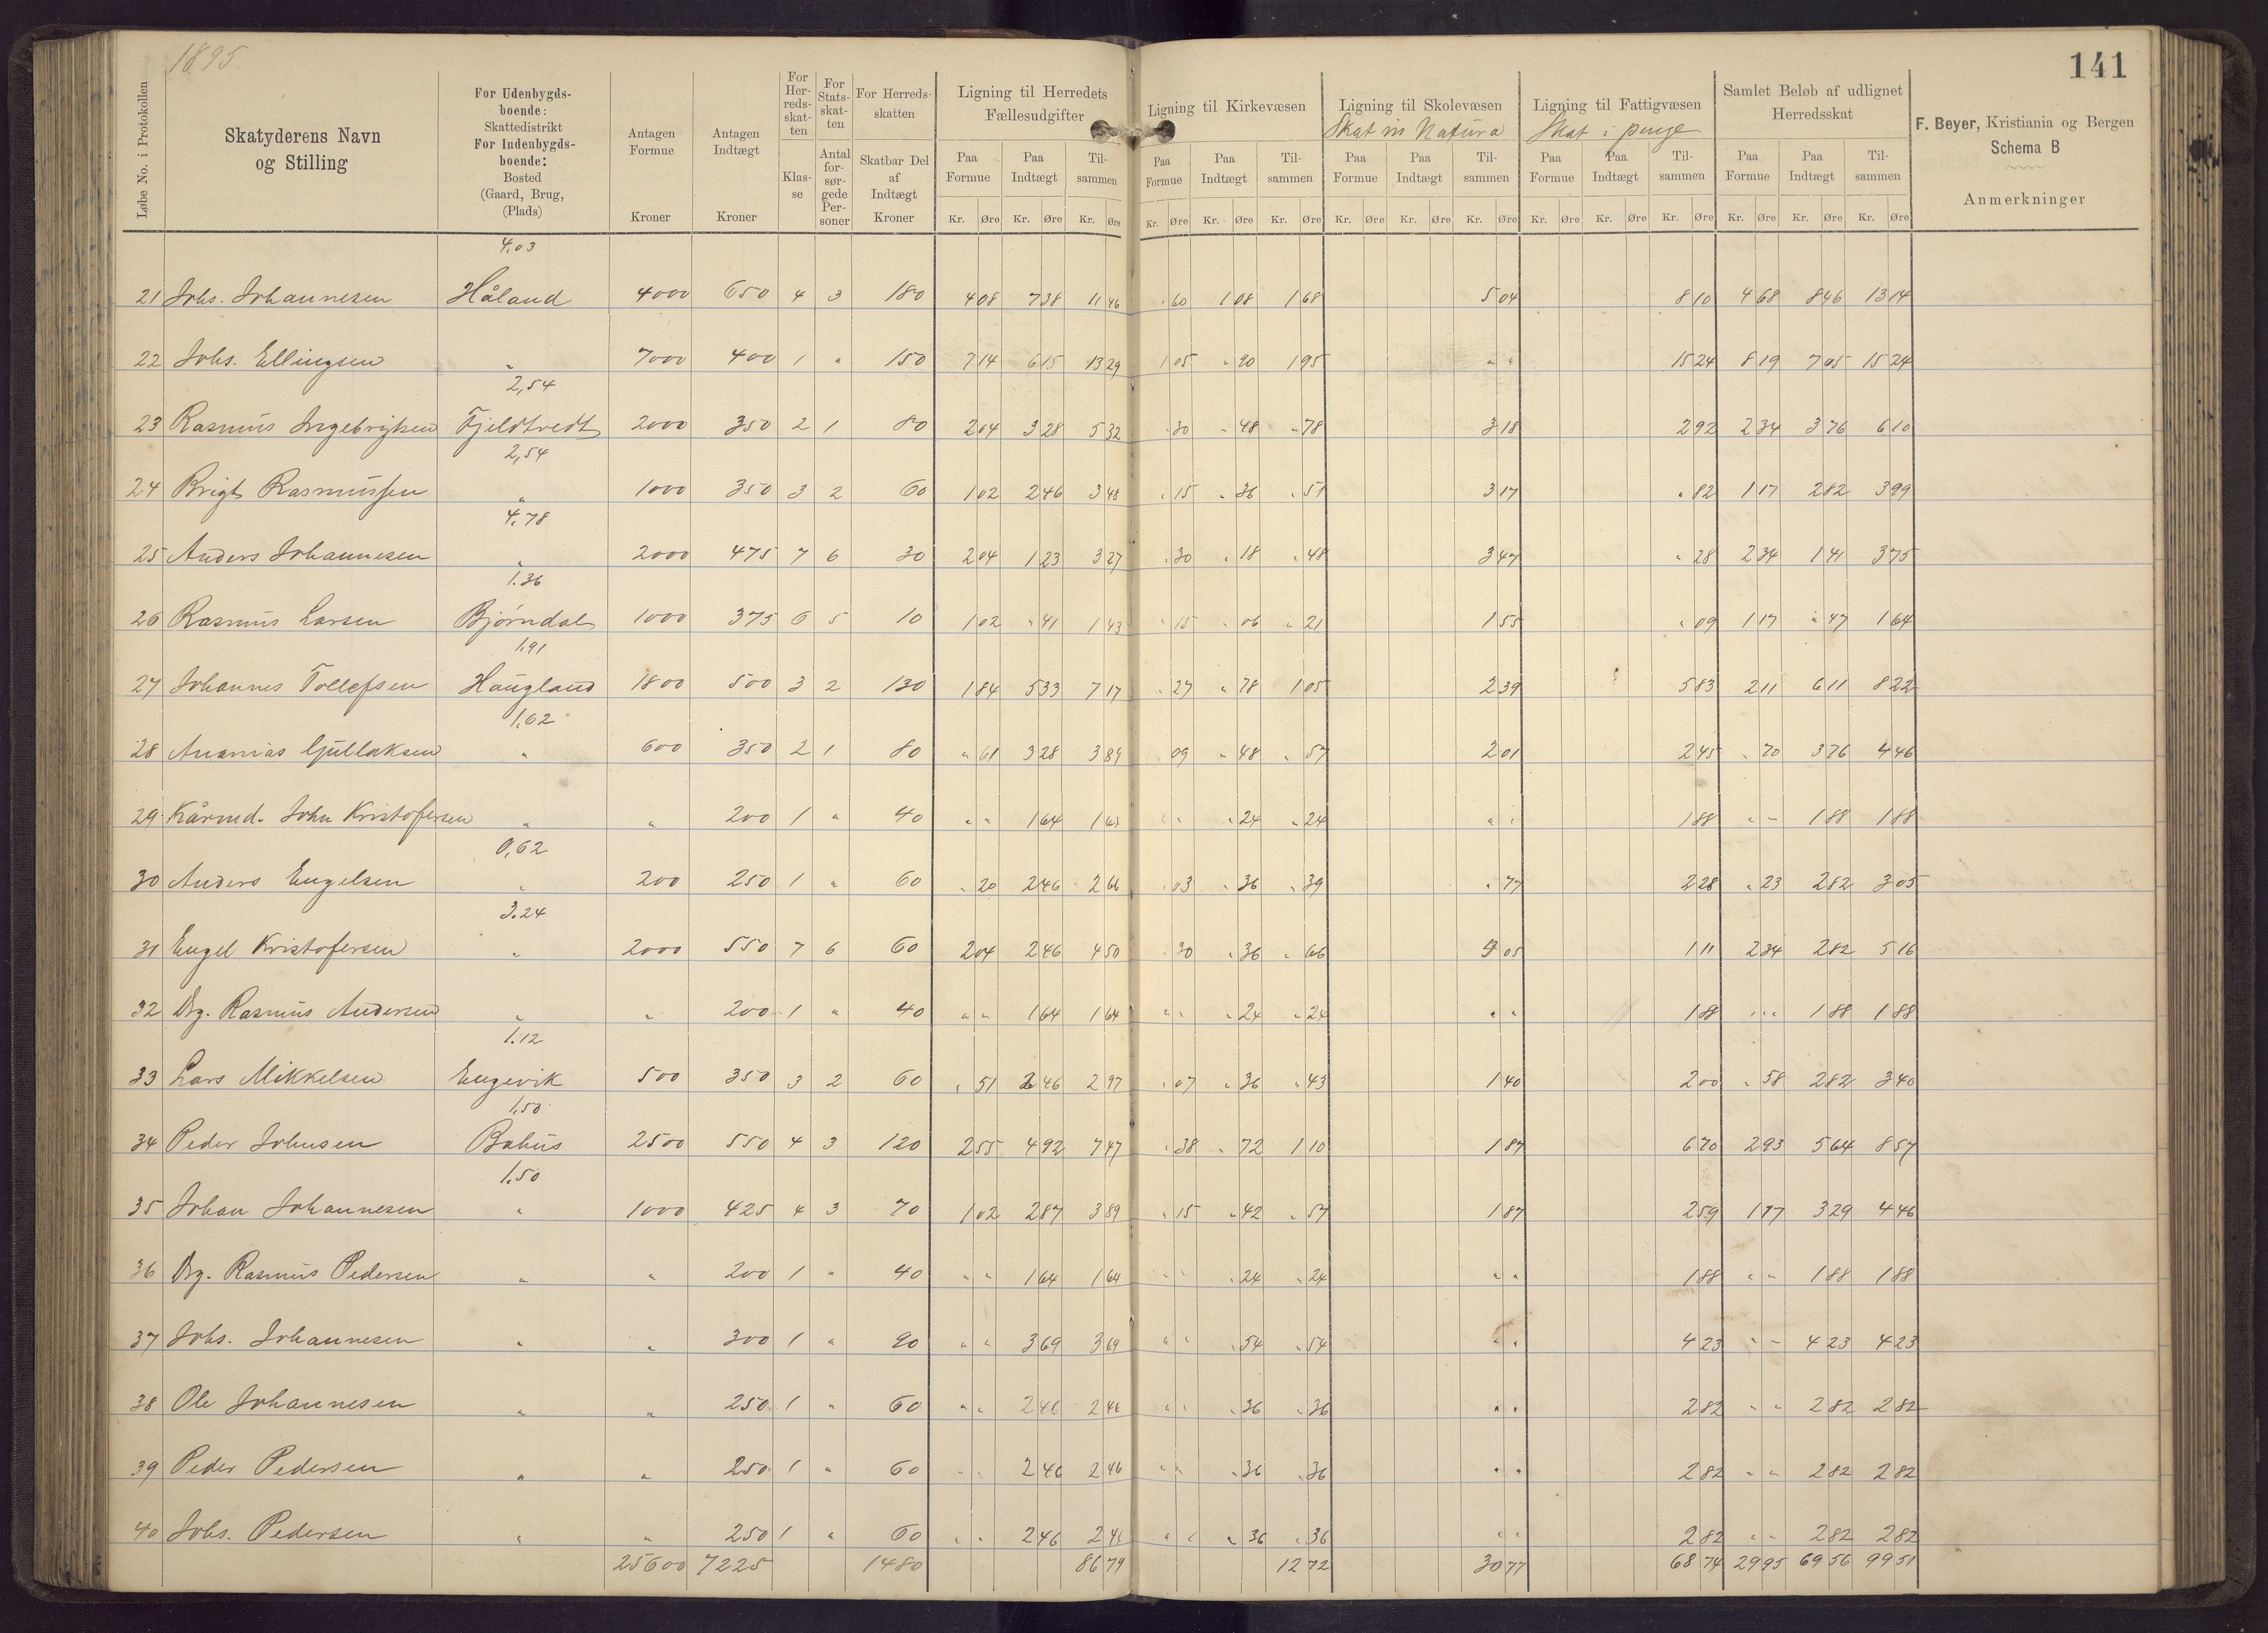 1895.
141
Løbe No. i Protokollen
Skatyderens Navn og Stilling
For Udenbygds-boende: Skattedistrikt For Indenbygds-boende: Bosted (Gaard, Brug, (Plads)
Antagen Formue Kroner
Antagen Indtægt Kroner
For Her-reds-skat-ten Klas-se
For Stats-skat-ten Antal for-sør-gede Per-soner
For Herreds-skatten Skatbar Del af Indtægt Kroner
Ligning til Herredets Fællesudgifter
Paa Formue Paa Indtægt Til-sammen
Kr. Øre Kr. Øre Kr. Øre
Ligning til Kirkevæsen
Paa Formue Paa Indtægt Til-sammen
Kr. Øre Kr. Øre Kr. Øre
Ligning til Skolevæsen
Skat in Natura
Paa Formue Paa Indtægt Til-sammen
Kr. Øre Kr. Øre Kr. Øre
Ligning til Fattigvæsen
Skat i penge
Paa Formue Paa Indtægt Til-sammen
Kr. Øre Kr. Øre Kr. Øre
Samlet Beløb af udlignet Herredsskat
Paa Formue Paa Indtægt Til-sammen
Kr. Øre Kr. Øre Kr. Øre
F. Beyer, Kristiania og Bergen
Schema B
Anmerkninger
4,03
21 Johs. Johannesen Håland 4000 650 4 3 180 4 08 7 38 11 46 " 60 1 08 1 68 5 04 8 10 4 68 8 46 13 14
22 Johs. Ellingsen " 7000 400 1 " 150 7 14 6 15 13 29 1 05 " 90 1 95 " " 15 24 8 19 7 05 15 24
2,54
23 Rasmus Ingebrigtsen Fjeldtvedt 2000 350 2 1 80 2 04 3 28 5 32 " 30 " 48 " 78 3 18 2 92 2 34 3 76 6 10
2,54
24 Brigt Rasmussen " 1000 350 3 2 60 1 02 2 46 3 48 " 15 " 36 " 51 3 17 " 82 1 17 2 82 3 99
4,78
25 Anders Johannesen " 2000 475 7 6 30 2 04 1 23 3 27 " 30 " 18 " 48 3 47 " 28 2 34 1 41 3 75
1.36
26 Rasmus Larsen Bjørndal 1000 375 6 5 10 1 02 " 41 1 43 " 15 " 06 " 21 1 55 " 09 1 17 " 47 1 64
1.91
27 Johannes Tollefsen Haugland 1800 500 3 2 130 1 84 5 33 7 17 " 27 " 78 1 05 2 39 5 83 2 11 6 11 8 22
1,62
28 Ananias Gullaksen " 600 350 2 1 80 " 61 3 28 3 89 " 09 " 48 " 57 2 01 2 45 " 70 3 76 4 46
29 Kårmd. John Kristofersen " " 200 1 " 40 " " 1 64 1 64 " " " 24 " 24 " " 1 88 " " 1 88 1 88
0,62
30 Anders Engelsen " 200 250 1 " 60 " 20 2 46 2 66 " 03 " 36 " 39 " 77 2 28 " 23 2 82 3 05
3.24
31 Engel Kristofersen " 2000 550 7 6 60 2 04 2 46 4 50 " 30 " 36 " 66 4 05 1 11 2 34 2 82 5 16
32 Drg. Rasmus Andersen " " 200 1 " 40 " " 1 64 1 64 " " " 24 " 24 " " 1 88 " " 1 88 1 88
1.12
33 Lars Mikkelsen Engevik 500 350 3 2 60 " 51 2 46 2 97 " 07 " 36 " 43 1 40 2 00 " 58 2 82 3 40
1,50
34 Peder Johnsen Bahus 2500 550 4 3 120 2 55 4 92 7 47 " 38 " 72 1 10 1 87 6 70 2 93 5 64 8 57
1.50
35 Johan Johannesen " 1000 425 4 3 70 1 02 2 87 3 89 " 15 " 42 " 57 1 87 2 59 1 17 3 29 4 46
36 Drg. Rasmus Pedersen " " 200 1 " 40 " " 1 64 1 64 " " " 24 " 24 " " 1 88 " " 1 88 1 88
37 Johs. Johannesen " " 300 1 " 90 " " 3 69 3 69 " " " 54 " 54 " " 4 23 " " 4 23 4 23
38 Ole Johannesen " " 250 1 " 60 " " 2 46 2 46 " " " 36 " 36 " " 2 82 " " 2 82 2 82
39 Peder Pedersen " " 250 1 " 60 " " 2 46 2 46 " " " 36 " 36 " " 2 82 " " 2 82 2 82
40 Johs. Pedersen " " 250 1 " 60 " " 2 46 2 46 " " " 36 " 36 " " 2 82 " " 2 82 2 82
25600 7225 1480 86 79 12 72 30 77 68 74 29 95 69 56 99 51